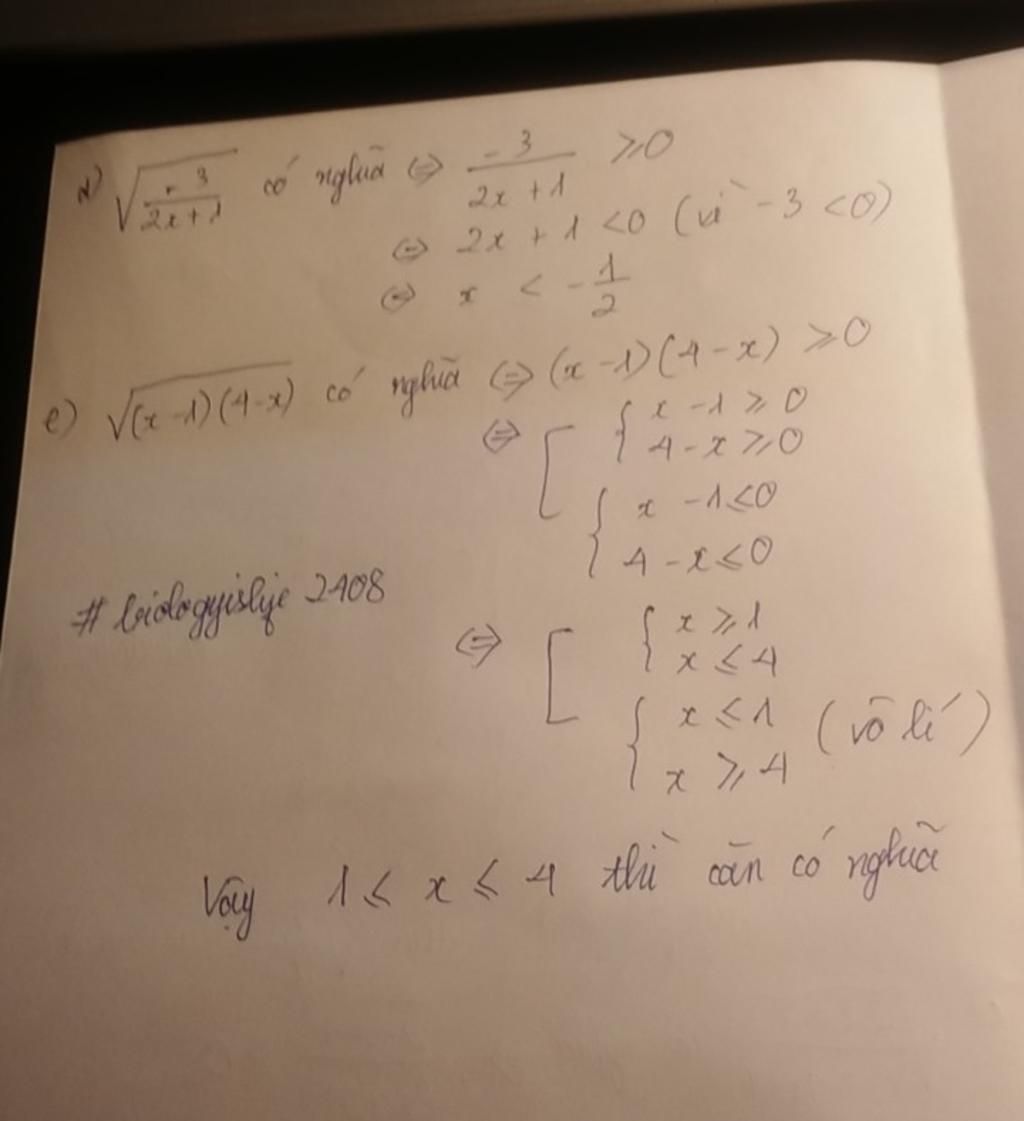 d) √(-3/(2x+1)) có nghĩa ⇔ -3/(2x+1) ≥ 0
⇔ 2x + 1 < 0 (vì -3 < 0)
⇔ x < -1/2
e) √((x-1)(4-x)) có nghĩa ⇔ (x-1)(4-x) ≥ 0
⇔ [ { x - 1 ≥ 0
4 - x ≥ 0
{ x - 1 ≤ 0
4 - x ≤ 0
# biologyislife 2408
⇔ [ { x ≥ 1
x ≤ 4
{ x ≤ 1
x ≥ 4 (vô lí)
Vậy 1 ≤ x ≤ 4 thì căn có nghĩa